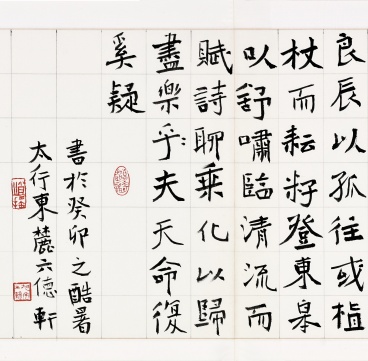 良辰以孤往或植
杖而耘耔登東皋
以舒嘯臨清流而
賦詩聊乘化以歸
盡樂乎夫天命復
奚疑
書於癸卯之酷暑
太行東麓六德軒